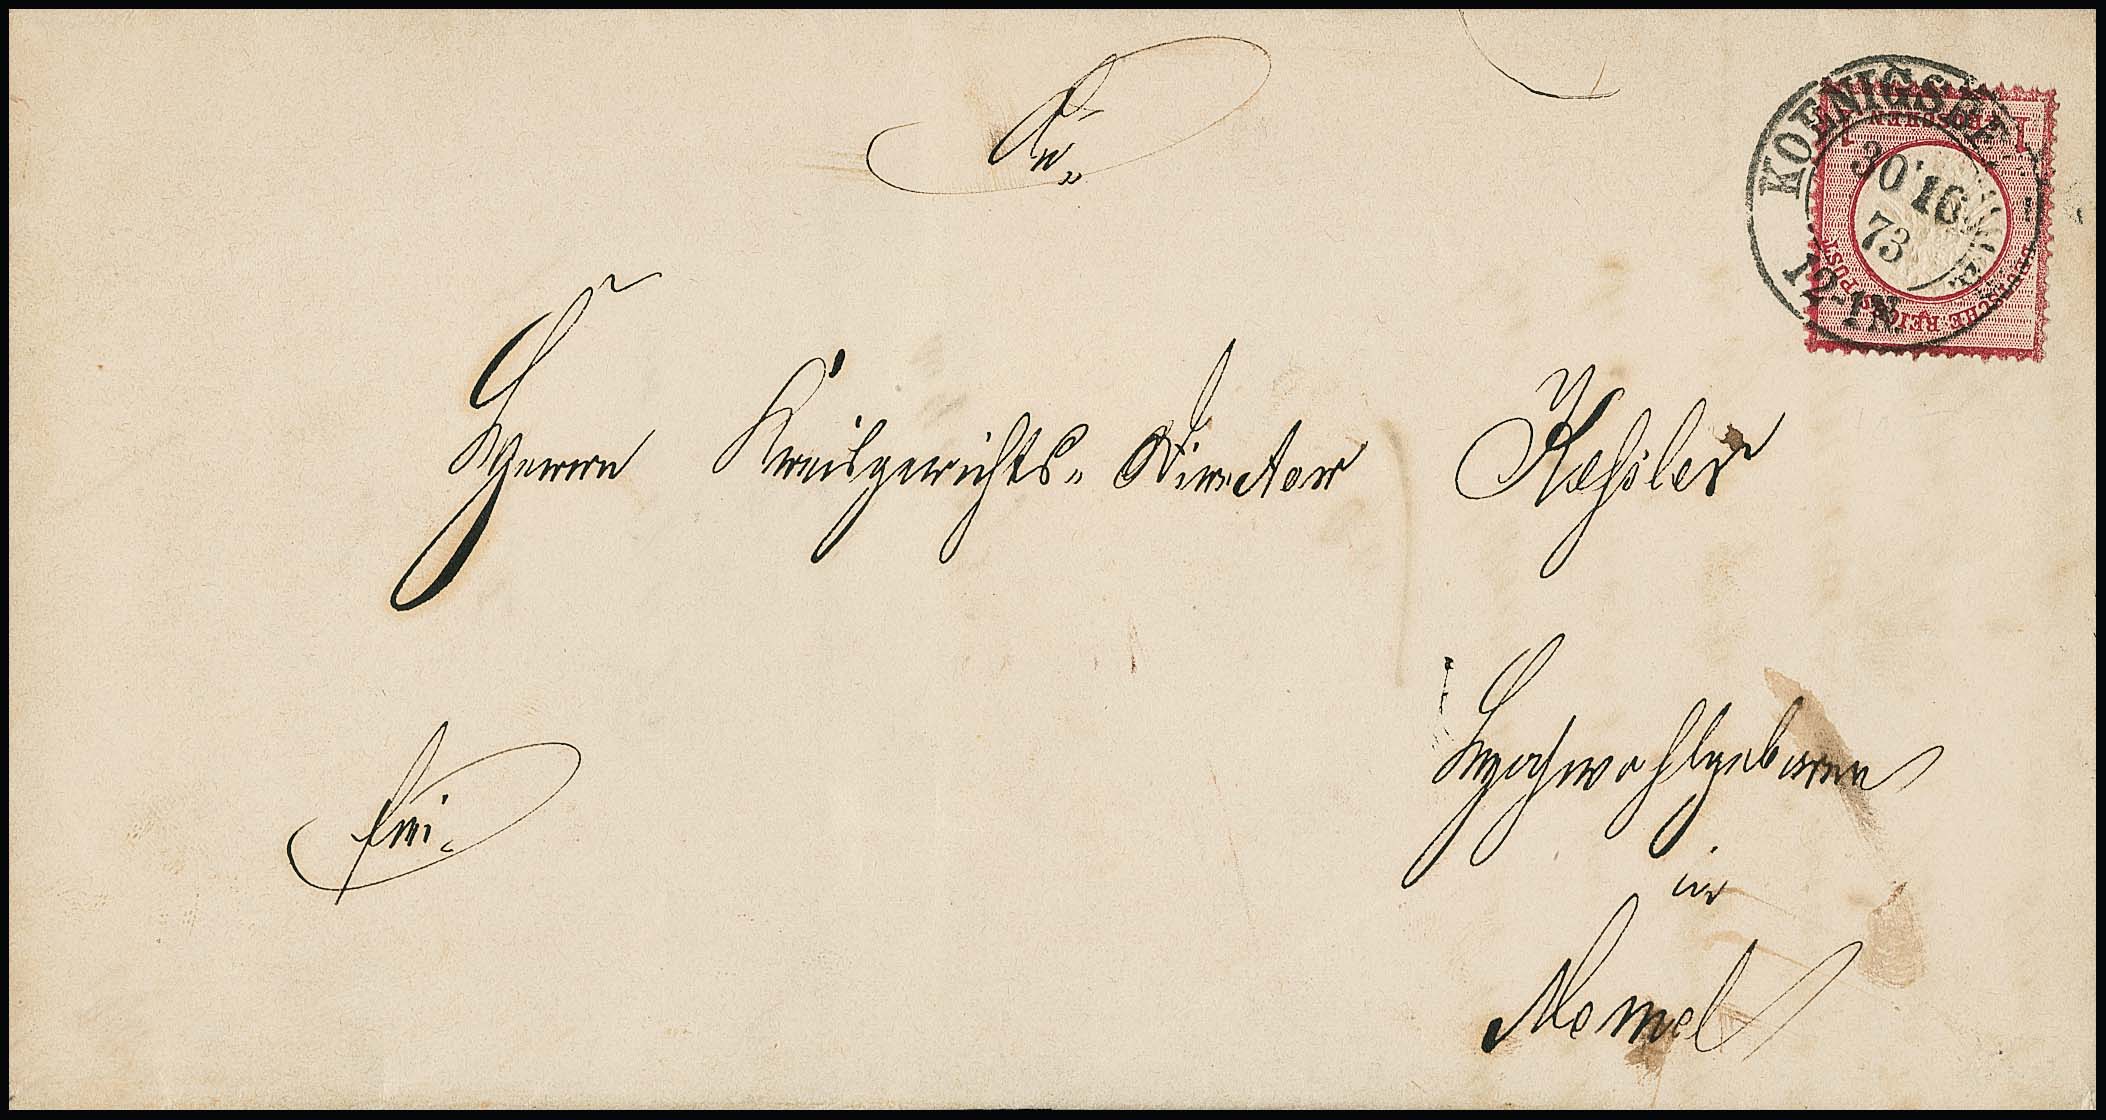 An
KOENIGSBE
30 10
73
12-1N.
1 GROSCHEN 1
DEUTSCHE REICHS-POST
Herrn Kreisgerichts-Director Kessler
Hochwohlgeboren
frei.
in
Memel